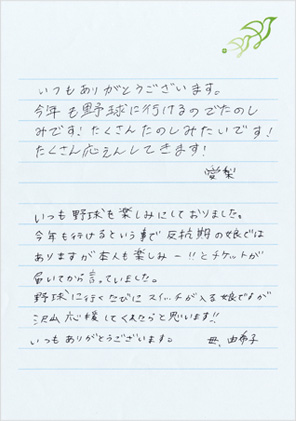 いつもありがとうございます。
今年も野球に行けるのでたのし
みです！たくさんたのしみたいです！
たくさん応えんしてきます！
愛梨
いつも野球を楽しみにしておりました。
今年も行けるという事で反抗期の娘では
ありますが本人も楽しみー!!とチケットが
届いてから言っていました。
野球に行くたびにスイッチが入る娘ですが
沢山応援してくれたらと思います!!
いつもありがとうございます。 母、由希子